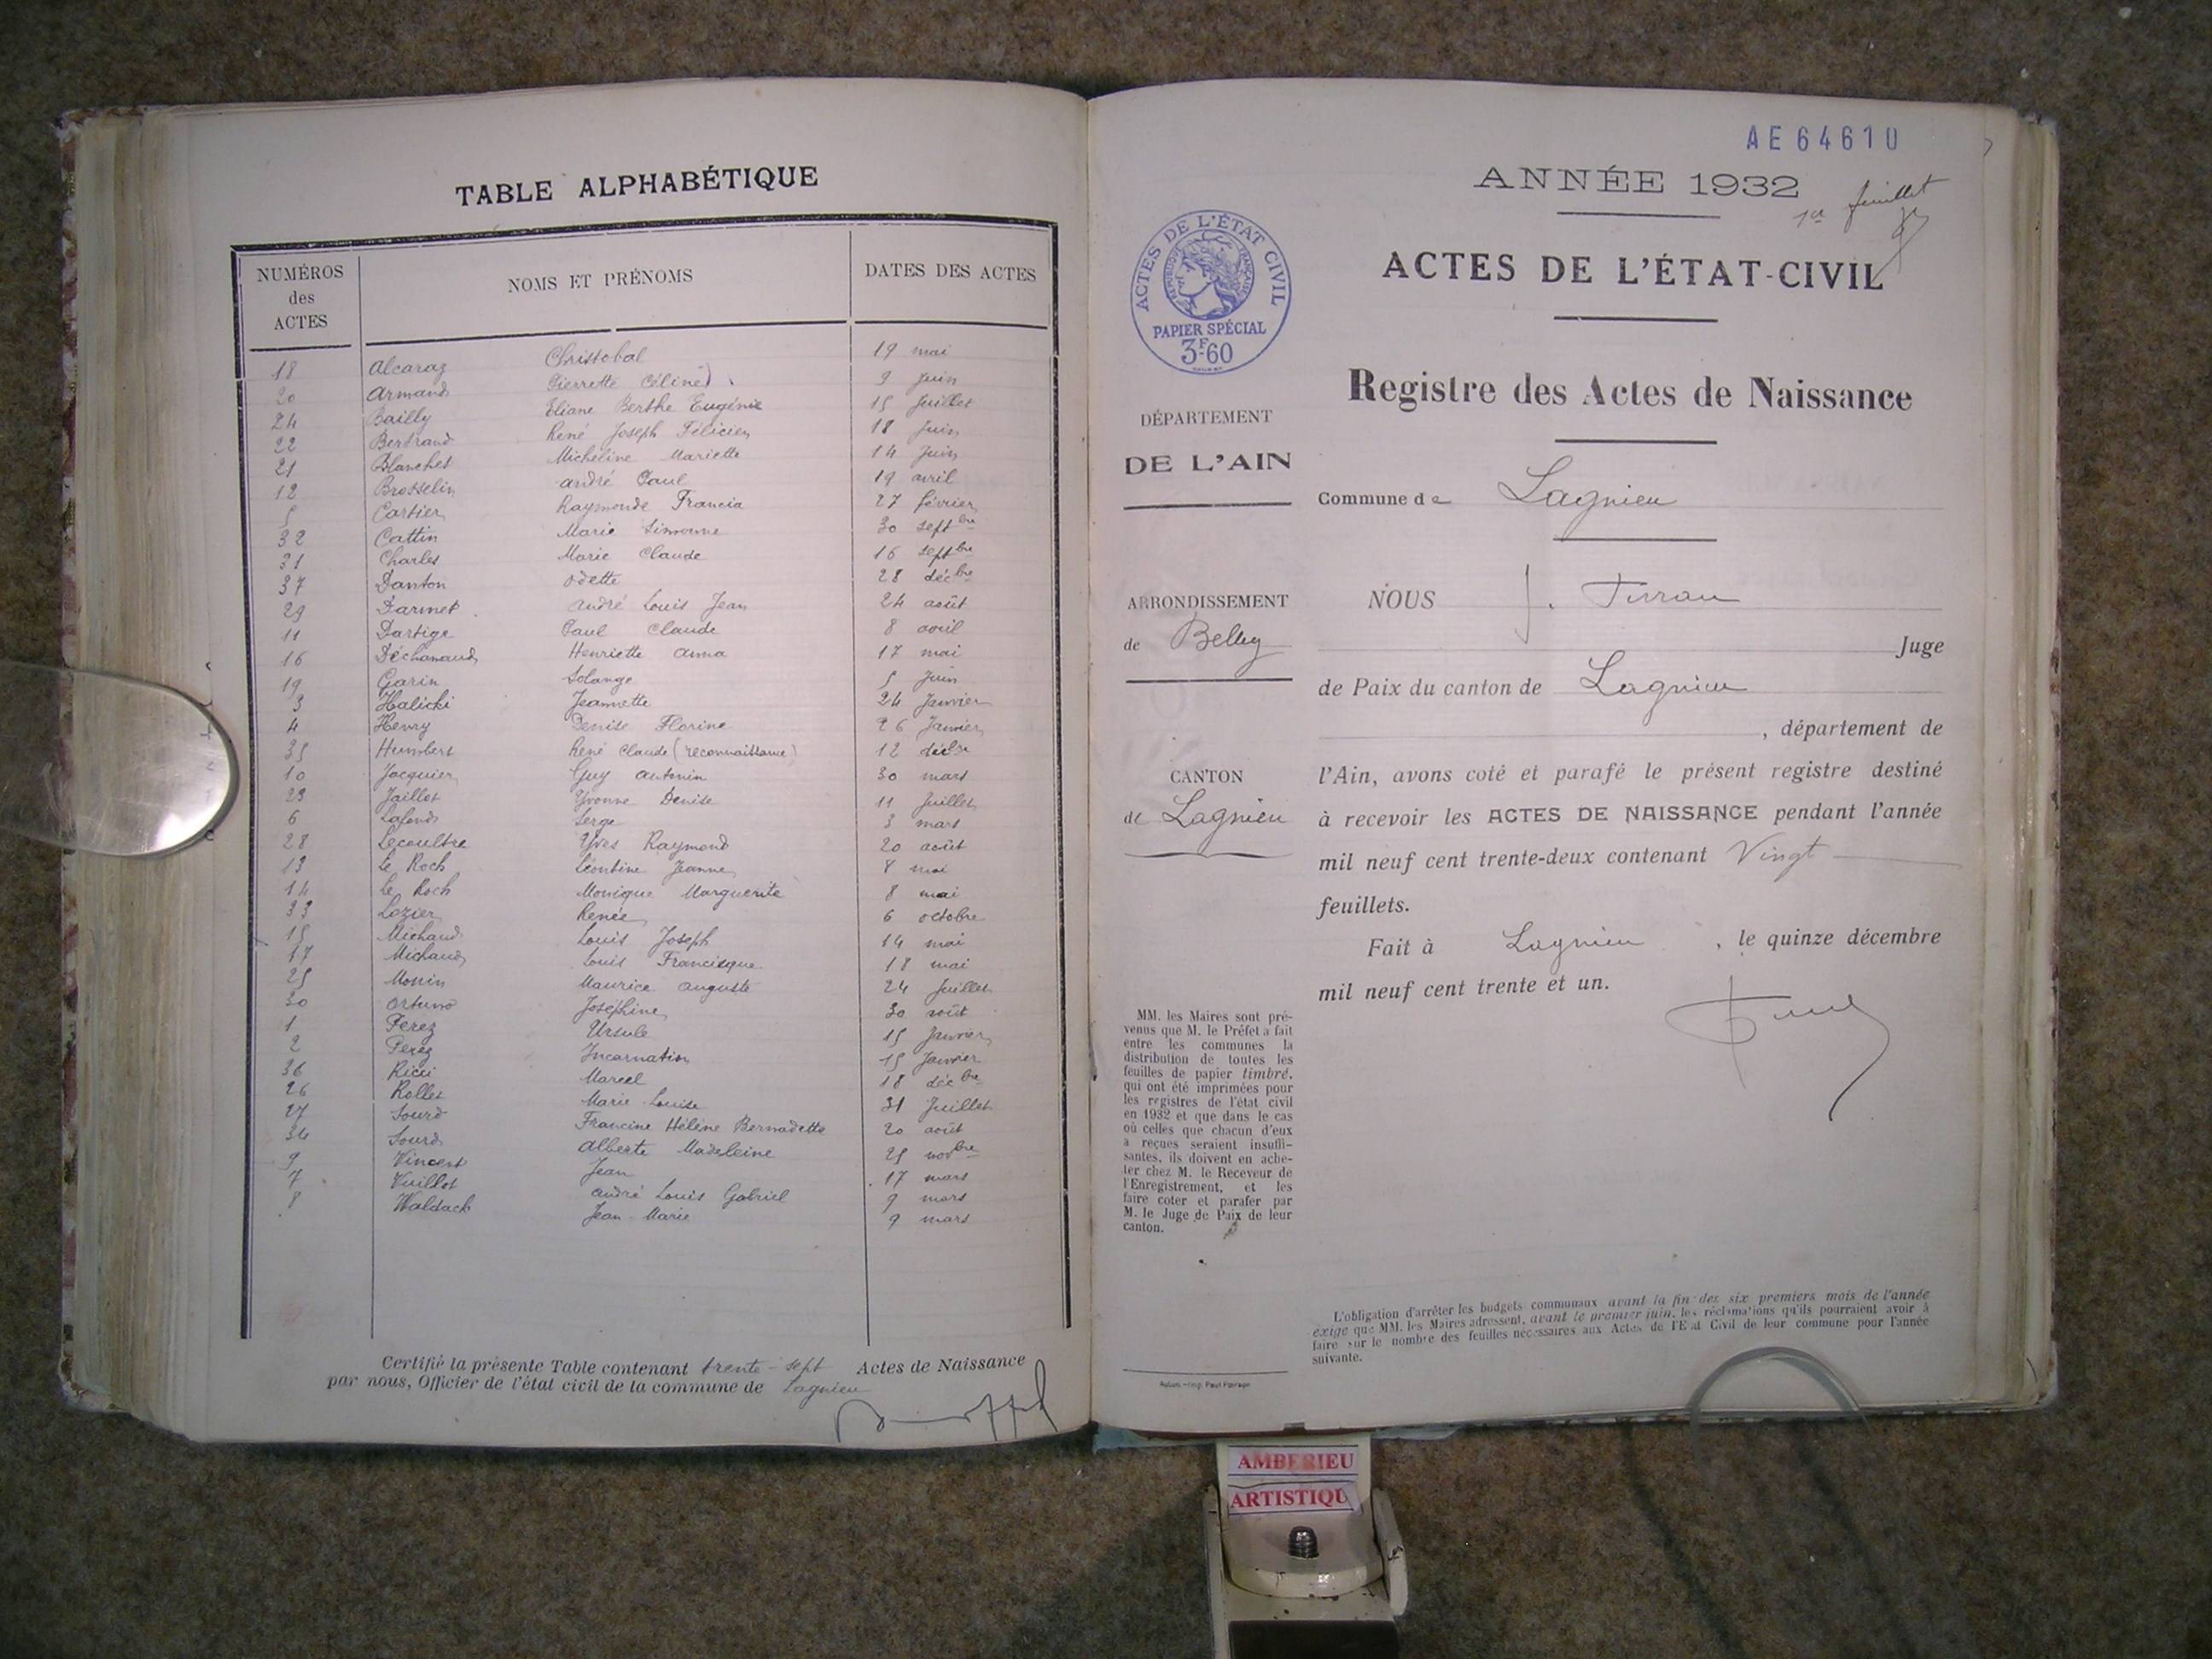 TABLE ALPHABÉTIQUE
NUMÉROS des ACTES NOMS ET PRÉNOMS DATES DES ACTES
18 Alcaraz Christobal 19 mai
20 Armand Pierrette Céline 9 Juin
24 Bailly Eliane Berthe Eugénie 15 Juillet
22 Bertrand René Joseph Félicien 18 Juin
21 Blanchet Micheline Mariette 14 Juin
12 Brosselin André Paul 19 avril
5 Cartier Raymonde Francia 27 février
32 Cattin Marie Simonne 30 septbre
31 Charles Marie Claude 16 septbre
37 Danton Odette 28 décbre
29 Darmet André Louis Jean 24 août
11 Dartige Paul Claude 8 avril
16 Déchanaud Henriette Anna 17 mai
19 Garin Solange 5 Juin
3 Halicki Jeannette 24 Janvier
4 Henry Denise Florine 26 Janvier
35 Humbert René Claude (reconnaissance) 12 décbre
10 Jacquier Guy Antonin 30 mars
23 Jaillot Yvonne Denise 11 Juillet
6 Lafond Serge 3 mars
28 Lecoultre Yves Raymond 20 août
13 Le Roch Léontine Jeanne 8 mai
14 Le Roch Monique Marguerite 8 mai
33 Lozier Renée 6 octobre
15 Michaud Louis Joseph 14 mai
17 Michaud Louis Francisque 18 mai
25 Monin Maurice Auguste 24 Juillet
30 Ortuno Joséphine 30 août
1 Perez Ursule 15 Janvier
2 Perez Incarnation 15 Janvier
36 Ricci Marcel 18 décbre
26 Rollet Marie Louise 31 Juillet
27 Sourd Francine Hélène Bernadette 20 août
34 Sourd Alberte Madeleine 25 novbre
9 Vincent Jean 17 mars
7 Vuillot André Louis Gabriel 9 mars
8 Waldack Jean-Marie 9 mars
Certifié la présente Table contenant trente-sept Actes de Naissance
par nous, Officier de l'état civil de la commune de Lagnieu
AE 64610
ANNÉE 1932
1er feuillet
ACTES DE L'ÉTAT-CIVIL
Registre des Actes de Naissance
ACTES DE L'ÉTAT CIVIL
RÉPUBLIQUE FRANÇAISE
PAPIER SPÉCIAL
3F60
DÉPARTEMENT
DE L'AIN
ARRONDISSEMENT
de Belley
CANTON
de Lagnieu
MM. les Maires sont pré-
venus que M. le Préfet a fait
entre les communes la
distribution de toutes les
feuilles de papier timbré,
qui ont été imprimées pour
les registres de l'état civil
en 1932 et que dans le cas
où celles que chacun d'eux
a reçues seraient insuffi-
santes, ils doivent en ache-
ter chez M. le Receveur de
l'Enregistrement, et les
faire coter et parafer par
M. le Juge de Paix de leur
canton.
Commune de Lagnieu
NOUS J.
Juge
de Paix du canton de Lagnieu
, département de
l'Ain, avons coté et parafé le présent registre destiné
à recevoir les ACTES DE NAISSANCE pendant l'année
mil neuf cent trente-deux contenant Vingt
feuillets.
Fait à Lagnieu, le quinze décembre
mil neuf cent trente et un.
L'obligation d'arrêter les budgets communaux avant la fin des six premiers mois de l'année
exige que MM. les Maires adressent, avant le premier juin, les réclamations qu'ils pourraient avoir à
faire sur le nombre des feuilles nécessaires aux Actes de l'Etat Civil de leur commune pour l'année
suivante.
AMBERIEU
ARTISTIQU